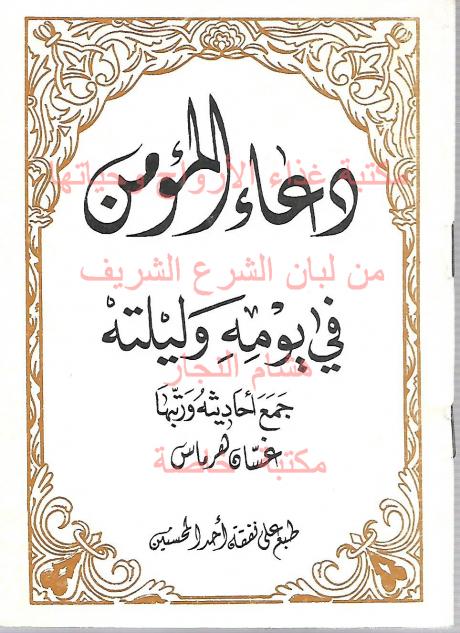 دعاء المؤمن
مكتبة غذاء الأرواح وحياتها
من لبان الشرع الشريف
في يَوْمِهِ وَليْلتهْ
هشام النجار
جَمَعَ أحَاديثهُ وَرَتّبهَا
غسّان هرماس
مكتبة خاصة
طبع على نفقة أحد المحسنين